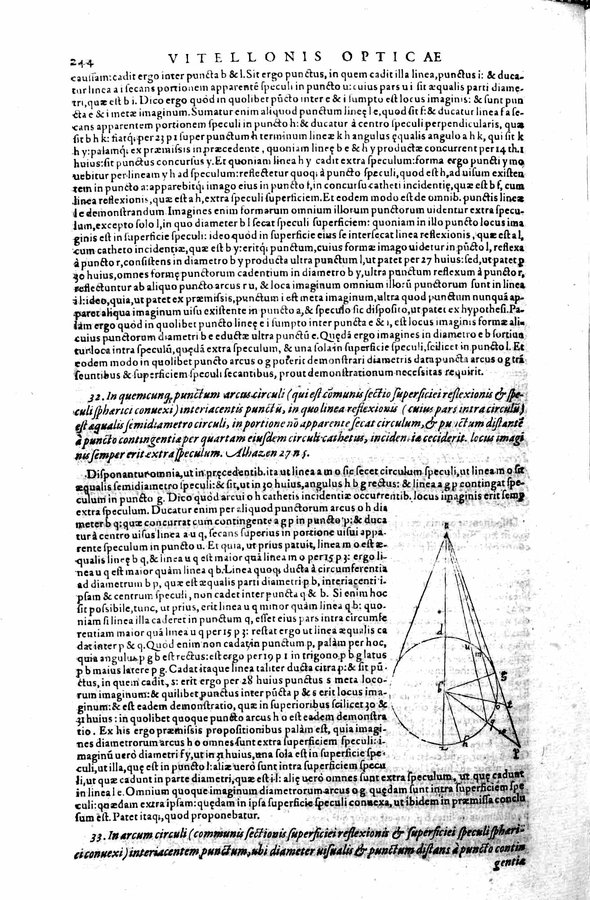 244 VITELLONIS OPTICAE
caussam: cadit ergo inter puncta b & l. Sit ergo punctus, in quem cadit illa linea, punctus i: & duca-
tur linea a i secans portionem apparentē speculi in puncto u: cuius pars u i sit æqualis parti diame-
tri, quæ est b i. Dico ergo quòd in quolibet pũcto inter e & i sumpto est locus imaginis: & sunt pun
cta e & i metæ imaginum. Sumatur enim aliquod punctum lineę l e, quod sit f: & ducatur linea f a se-
cans apparentem portionem speculi in puncto h: & ducatur à centro speculi perpendicularis, quæ
sit b h k: fiatq́; per 23 p 1 super punctum h terminum lineæ k h angulus ęqualis angulo a h k, qui sit k
h y: palamq́; ex præmissis in præcedente, quoniam lineę b e & h y productæ concurrent per 14 th. 1
huius: sit punctus concursus y. Et quoniam linea h y cadit extra speculum: forma ergo puncti y mo
uebitur per lineam y h ad speculum: reflectetur quoq; à puncto speculi, quod est h, ad uisum existen
tem in puncto a: apparebitq́; imago eius in puncto f, in concursu catheti incidentię, quæ est b f, cum
linea reflexionis, quæ est a h, extra speculi superficiem. Et eodem modo est de omnib. punctis lineæ
l e demonstrandum. Imagines enim formarum omnium illorum punctorum uidentur extra specu-
lum, excepto solo l, in quo diameter b l secat speculi superficiem: quoniam in illo puncto locus ima
ginis est in superficie speculi: ideo quod in superficie eius se intersecat linea reflexionis, quæ est a l,
cum catheto incidentiæ, quæ est b y: eritq́; punctum, cuius formæ imago uidetur in pũcto l, reflexa
à puncto r, consistens in diametro b y producta ultra punctum l, ut patet per 27 huius: sed, ut patet p
30 huius, omnes formę punctorum cadentium in diametro b y, ultra punctum reflexum à puncto r,
reflectuntur ab aliquo puncto arcus r u, & loca imaginum omnium illorũ punctorum sunt in linea
i l: ideo, quia, ut patet ex præmissis, punctum i est meta imaginum, ultra quod punctum nunquā ap-
paret aliqua imaginum uisu existente in puncto a, & speculo sic disposito, ut patet ex hypothesi. Pa-
làm ergo quòd in quolibet puncto lineę e i sumpto inter puncta e & i, est locus imaginis formæ ali-
cuius punctorum diametri b e eductæ ultra punctũ e. Quędā ergo imagines in diametro e b sortiun
tur loca intra speculũ, quędā extra speculum, & una sola in superficie speculi, scilicet in puncto l. Et
eodem modo in quolibet puncto arcus o g poterit demonstrari diametris data puncta arcus o g trā
seuntibus & superficiem speculi secantibus, prout demonstrationem necessitas requirit.
32. In quemcunq; punctum arcus circuli (qui est cõmunis sectio superficiei reflexionis & spe-
culi sphærici conuexi) interiacentis punctũ, in quo linea reflexionis (cuius pars intra circulũ
est æqualis semidiametro circuli, in portione nõ apparente secat circulum, & punctum distantē
à puncto contingentia per quartam eiusdem circuli cathetus, incidentia ceciderit. locus imagi
nis semper erit extra speculum. Alhazen 27 n 5.
Disponantur omnia, ut in pręcedentib. ita ut linea a m o sic secet circulum speculi, ut linea m o sit
æqualis semidiametro speculi: & sit, ut in 30 huius, angulus h b g rectus: & linea a g p contingat spe-
culum in puncto g. Dico quòd arcui o h cathetis incidentiæ occurrentib. locus imaginis erit semp
extra speculum. Ducatur enim per aliquod punctorum arcus o h dia
meter b q: quæ concurrat cum contingente a g p in puncto p: & duca
tur à centro uisus linea a u q, secans superius in portione uisui appa-
rente speculum in puncto u. Et quia, ut prius patuit, linea m o est æ-
qualis lineę b q, & linea u q est maior quā linea m o per 15 p 3: ergo li-
nea u q est maior quàm linea q b. Linea quoq; ducta à circumferentia
ad diametrum b p, quæ est æqualis parti diametri p b, interiacenti i-
psam & centrum speculi, non cadet inter puncta q & b. Si enim hoc
sit possibile, tunc, ut prius, erit linea u q minor quàm linea q b: quo-
niam si linea illa caderet in punctum q, esset eius pars intra circumfe
rentiam maior quā linea u q per 15 p 3: restat ergo ut linea æqualis ca
dat inter p & q. Quòd enim non cadat in punctum p, palàm per hoc,
quia angulus p g b est rectus: est ergo per 19 p 1 in trigono p b g latus
p b maius latere p g. Cadat itaque linea taliter ducta citra p: & sit pũ-
ctus, in quem cadit, s: erit ergo per 28 huius punctus s meta loco-
rum imaginum: & quilibet punctus inter pũcta p & s erit locus ima-
ginum: & est eadem demonstratio, quæ in superioribus scilicet 30 &
31 huius: in quolibet quoque puncto arcus h o est eadem demonstra
tio. Ex his ergo præmissis propositionibus palàm est, quòd imagi-
nes diametrorum arcus h o omnes sunt extra superficiem speculi: i-
maginũ uerò diametri f y, ut in 31 huius, una sola est in superficie spe-
culi, ut illa, quę est in puncto l: aliæ uerò sunt intra superficiem specu
li, ut quæ cadunt in parte diametri, quæ est i l: alię uerò omnes sunt extra speculum, ut quę cadunt
in linea l e. Omnium quoque imaginum diametrorum arcus o g quędam sunt intra superficiem spe
culi: quædam extra ipsam: quędam in ipsa superficie speculi conuexa, ut ibidem in præmissa conclu
sum est. Patet itaq;, quod proponebatur.
33. In arcum circuli (communis sectionis superficiei reflexionis & superficiei speculi sphæri-
ci conuexi) interiacentem punctum, ubi diameter uisualis & punctum distans à puncto contin
gentia